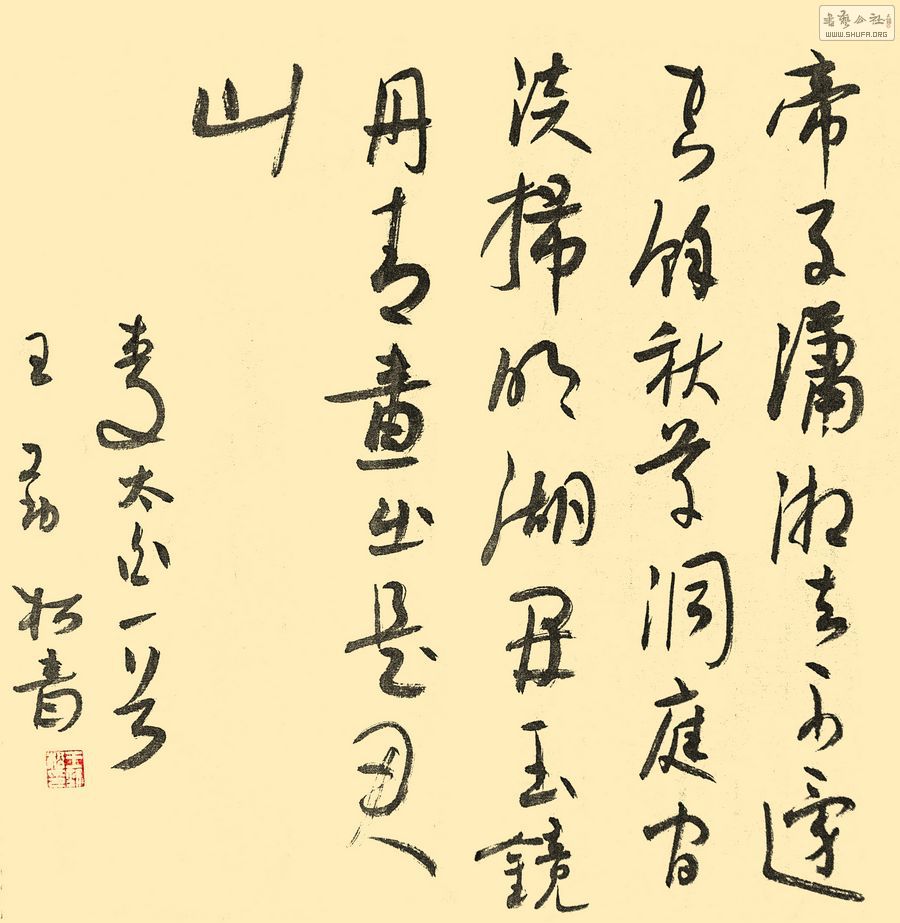 書藝公社
WWW.SHUFA.ORG
帝子瀟湘去不還
空餘秋草洞庭間
淡掃明湖開玉鏡
丹青畫出是君
山
李太白一首
王 書